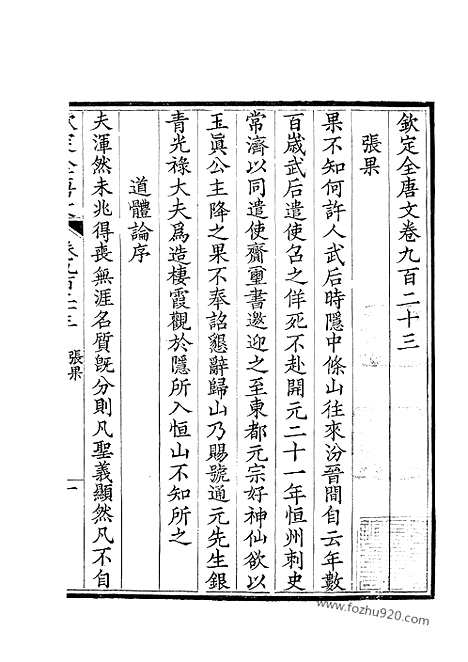 欽定全唐文卷九百二十三
張果
果不知何許人武后時隱中條山往來汾晉間自云年數
百歲武后遣使召之佯死不赴開元二十一年恒州刺史
常濟以同遣使齎璽書邀迎之至東都元宗好神仙欲以
玉眞公主降之果不奉詔懇辭歸山乃賜號通元先生銀
青光祿大夫爲造棲霞觀於隱所入恒山不知所之
道體論序
夫渾然未兆得喪無涯名質旣分則凡聖義顯然凡不自
欽定全唐文
卷九百二十三
張果
一
www.fozhu920.com